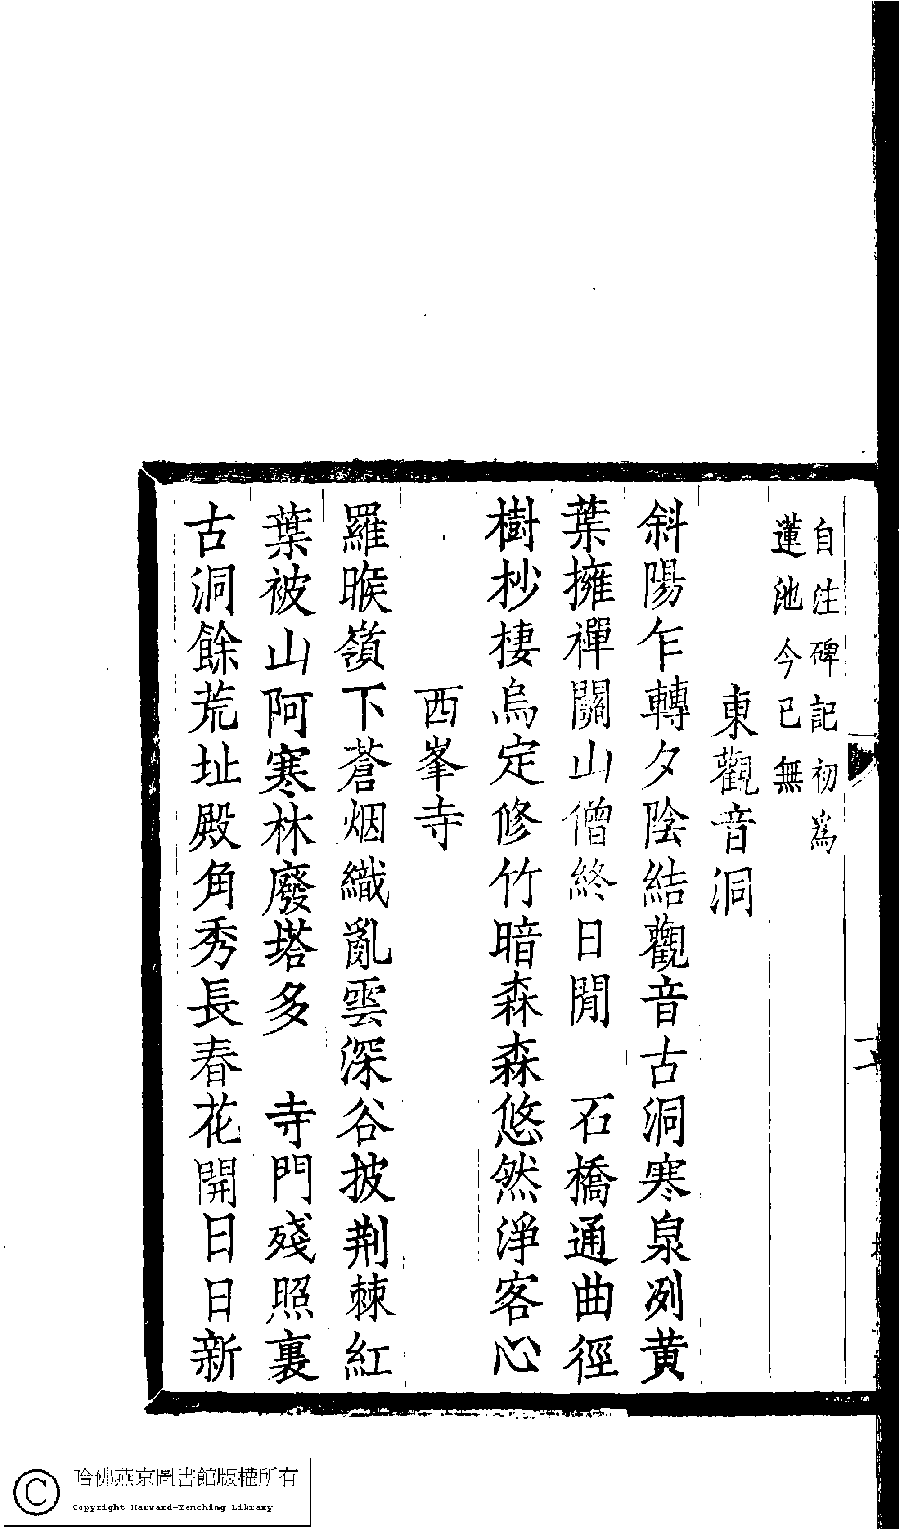 自注碑記初為
蓮池今已無
東觀音洞
斜陽乍轉夕陰結觀音古洞寒泉冽黄
葉擁禪關山僧終日閒　石橋通曲徑
樹杪棲烏定修竹暗森森悠然淨客心
西峯寺
羅睺嶺下蒼烟織亂雲深谷披荆棘紅
葉被山阿寒林廢塔多　寺門殘照裏
古洞餘荒址殿角秀長春花開日日新
哈佛燕京圖書館版權所有
Copyright Harvard-Yenching Library